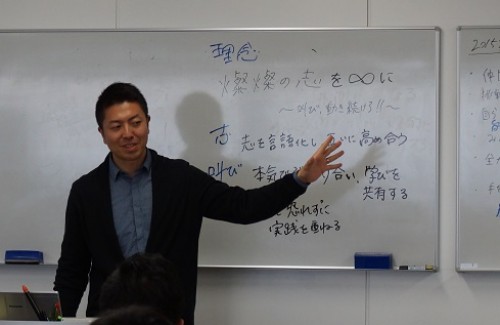 理念
燦燦の志を∞に
〜叫び、動き続けろ!!〜
志 志を言語化し 互いに高め合う
叫び 本気で 合い、学びを
共有する
恐れずに
実践を重ねる
2015